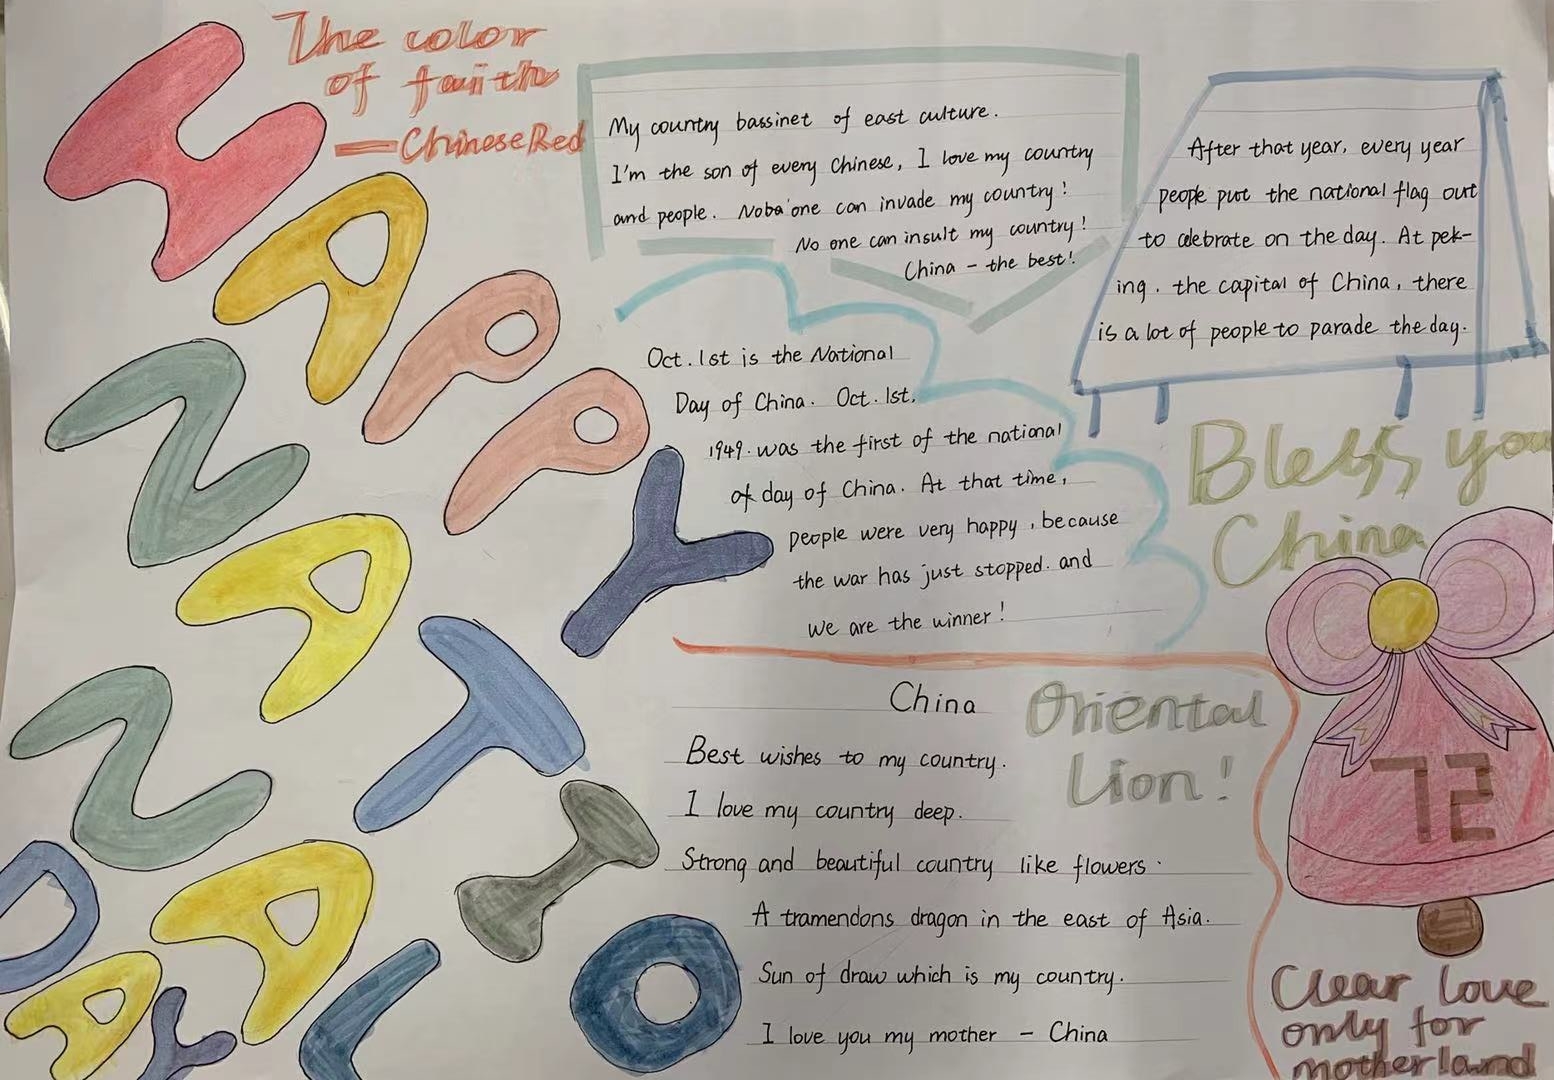 The color
of faith
—Chinese Red
HAPPY
NATIONAL
DAY
My country bassinet of east culture.
I'm the son of every Chinese, I love my country
and people. Noba'one can invade my country!
No one can insult my country!
China - the best!
After that year, every year
people put the national flag out
to celebrate on the day. At pek-
ing. the capital of China, there
is a lot of people to parade the day.
Oct.1st is the National
Day of China. Oct.1st,
1949. was the first of the national
of day of China. At that time,
people were very happy, because
the war has just stopped. and
we are the winner!
Bless you
China
72
China
Best wishes to my country.
I love my country deep.
Strong and beautiful country like flowers.
A tramendons dragon in the east of Asia.
Sun of draw which is my country.
I love you my mother - China
Oriental
Lion!
Clear love
only for
motherland